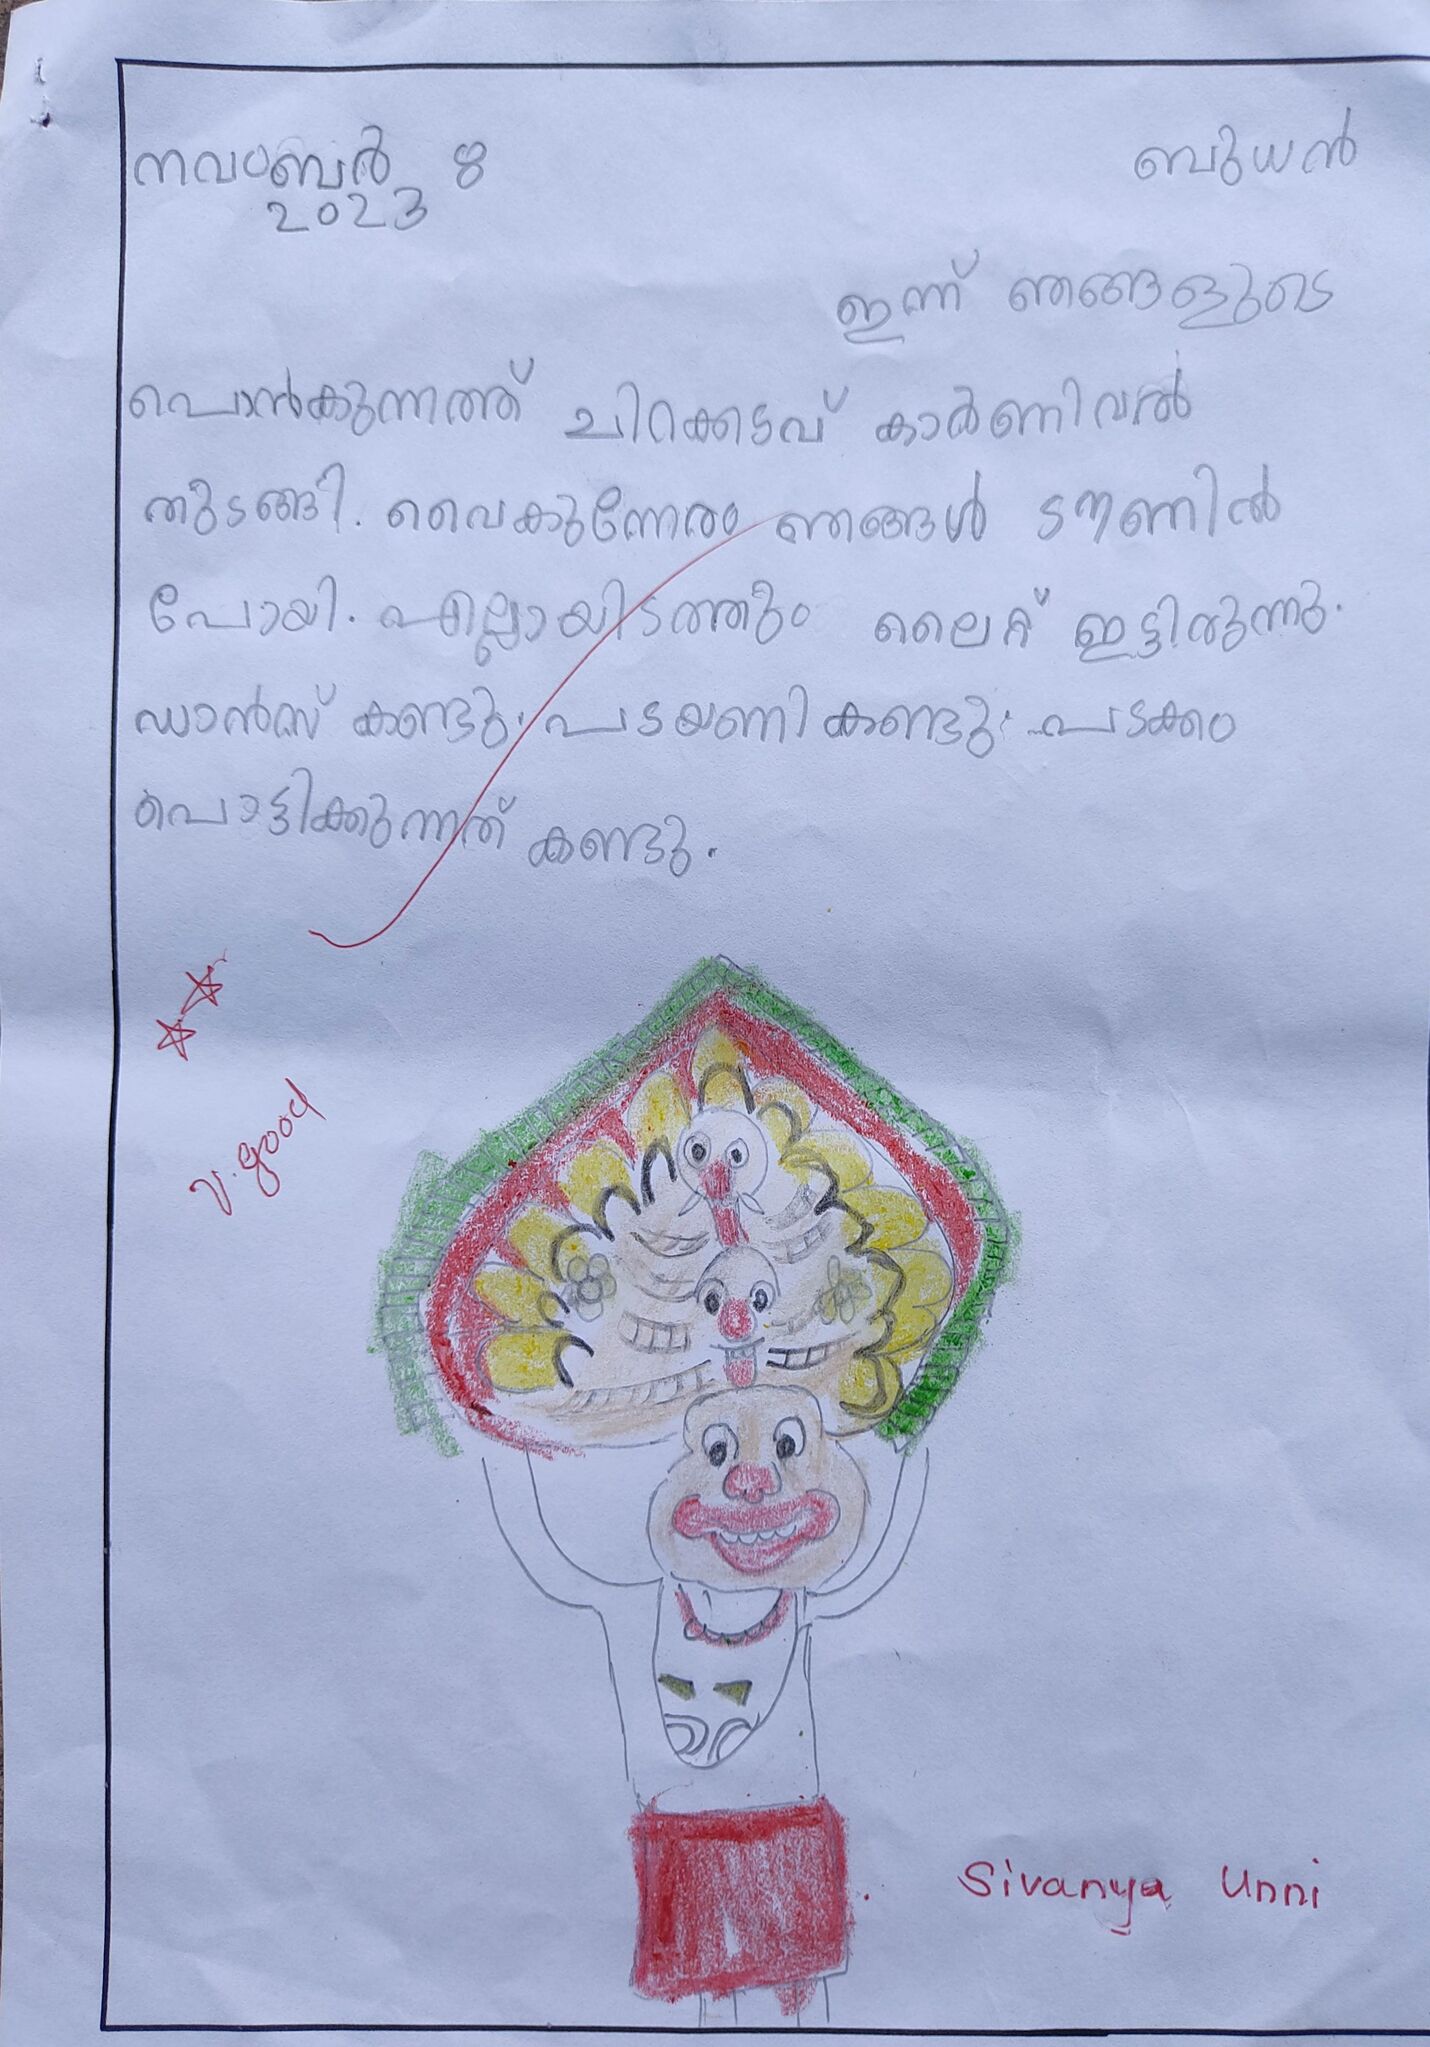 നവംബർ 8 ബുധൻ
2023
ഇന്ന് ഞങ്ങളുടെ
പൊൻകുന്നത്ത് ചിറക്കടവ് കാർണിവൽ
തുടങ്ങി. വൈകുന്നേരം ഞങ്ങൾ ടൗണിൽ
പോയി. എല്ലായിടത്തും ലൈറ്റ് ഇട്ടിരുന്നു.
ഡാൻസ് കണ്ടു. പടയണി കണ്ടു. പടക്കം
പൊട്ടിക്കുന്നത് കണ്ടു.
v. good
Sivanya Unni